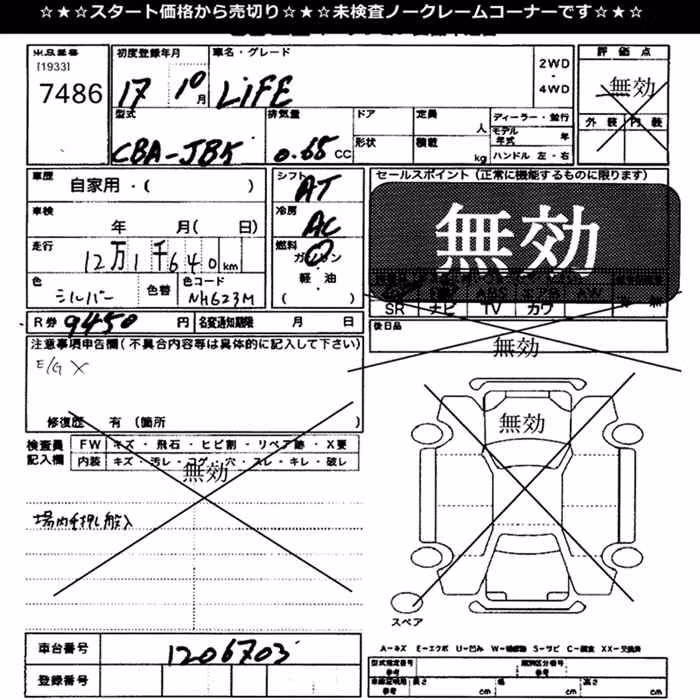 ☆★☆スタート価格から売切り☆★☆未検査ノークレームコーナーです☆★☆
[1933]
7486
初度登録年月
17 10月
車名・グレード
LiFE
2WD
・
4WD
評価点
無効
外装 内装
型式
CBA-JB5
排気量
0.65 CC
ドア
形状
定員
人
積載
kg
ディーラー・並行
モデル年式 年
ハンドル 左・右
車歴
自家用・( )
車検
年 月( 日)
走行
12万1千640km
色
シルバー
色替
色コード
NH623M
シフト
AT
冷房
AC
燃料
ガソリン
軽・油
( )
セールスポイント(正常に機能するものに限ります)
無効
SR ナビ TV カワ
R券 9450 円
名変通知期限 月 日
後日品
無効
注意事項申告欄(不具合内容等は具体的に記入して下さい)
E/G X
修復歴 有 (箇所
検査員
記入欄
FW キズ・飛石・ヒビ割・リペア跡・X要
内装 キズ・汚レ・コゲ・穴・スレ・キレ・破レ
無効
無効
場内手押し搬入
スペア
車台番号
1206703
登録番号
A-キズ E-エクボ U-凹み W-補修跡 S-サビ C-腐食 XX-交換済
型式指定番号
参考
類別区分番号
参考
長さ cm
幅 cm
高さ cm